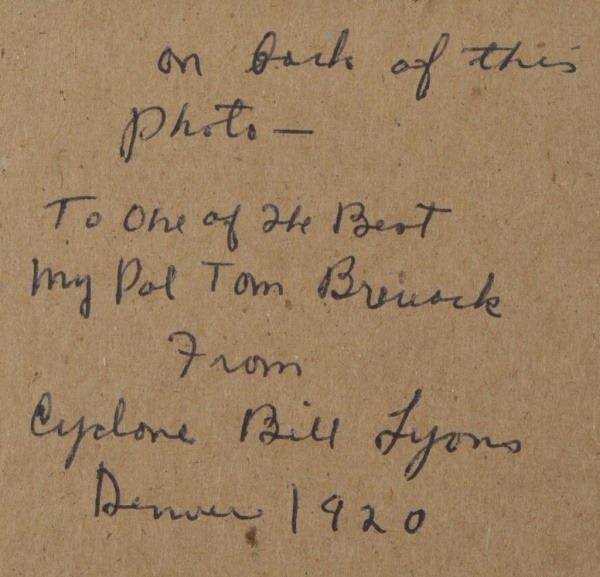 on back of this
photo —
To One of The Best
My Pal Tom
From
Cyclone Bill Lyons
Denver 1920